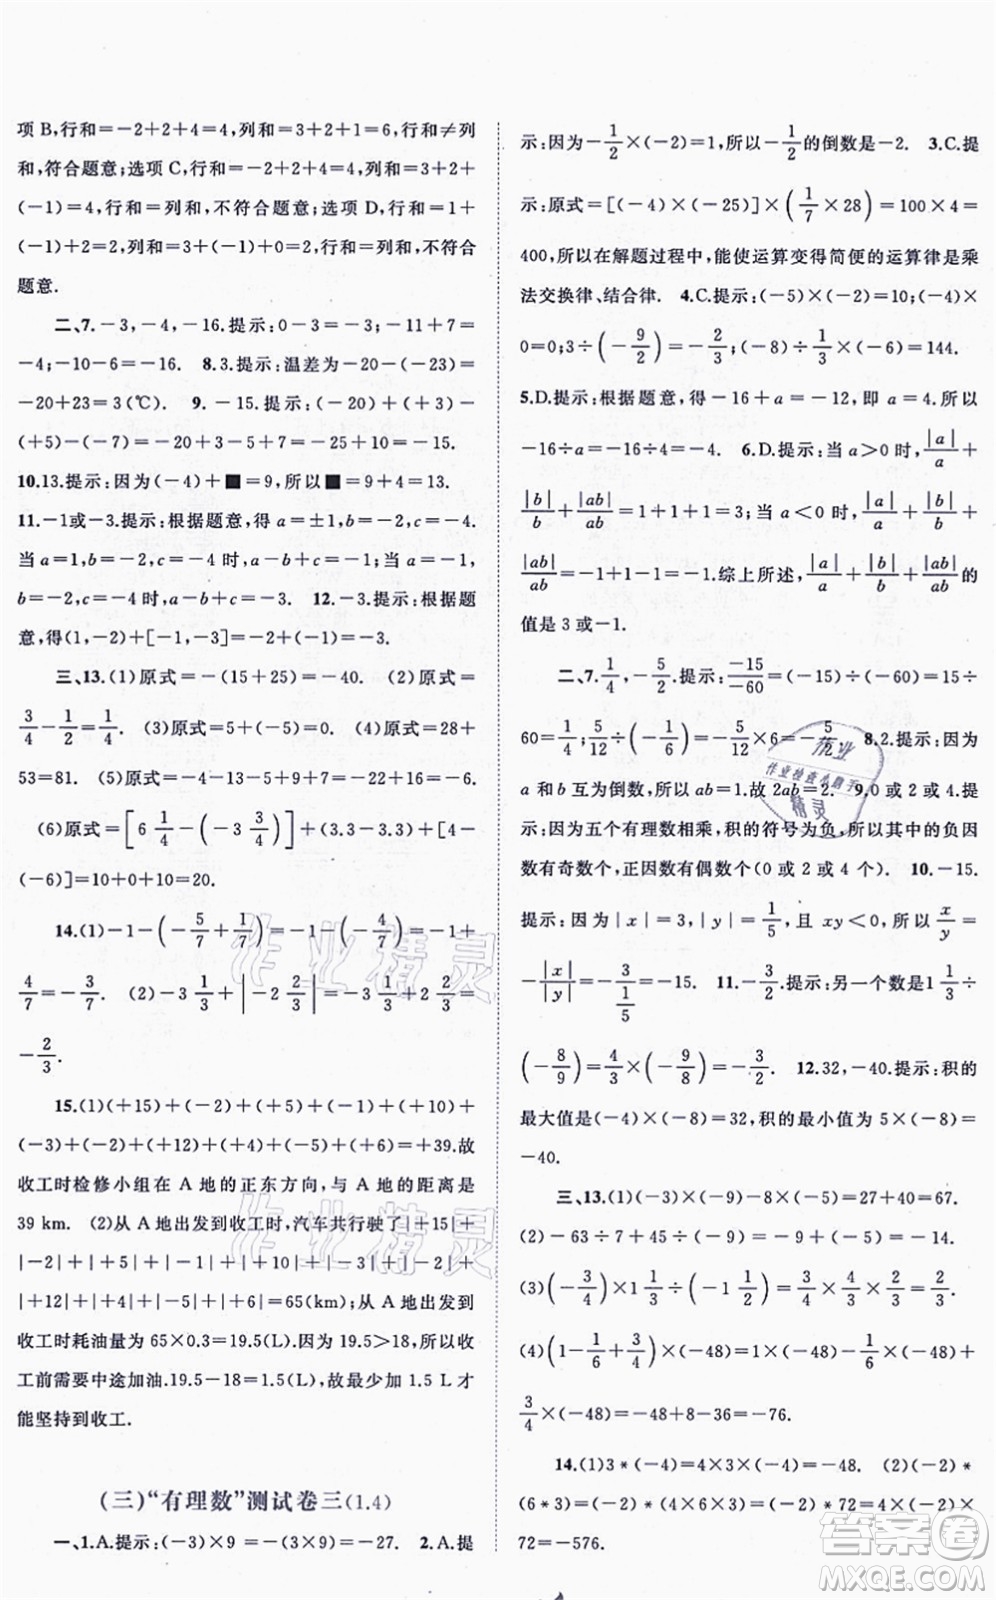 项 B,行和=-2+2+4=4,列和=3+2+1=6,行和≠列
和,符合题意;选项 C,行和=-2+2+4=4,列和=3+2+
(-1)=4,行和=列和,不符合题意;选项 D,行和=1+
(-1)+2=2,列和=3+(-1)+0=2,行和=列和,不符合
题意.
二、7.-3,-4,-16.提示:0-3=-3,-11+7=
-4;-10-6=-16. 8.3.提示:温差为-20-(-23)=
-20+23=3(℃). 9.-15.提示:(-20)+(+3)-
(+5)-(-7)=-20+3-5+7=-25+10=-15.
10.13.提示:因为(-4)+■=9,所以■=9+4=13.
11.-1或-3.提示:根据题意,得 a=±1,b=-2,c=-4.
当 a=1,b=-2,c=-4 时,a-b+c=-1;当 a=-1,
b=-2,c=-4时,a-b+c=-3. 12.-3.提示:根据题
意,得(1,-2)+[-1,-3]=-2+(-1)=-3.
三、13.(1)原式=-(15+25)=-40. (2)原式=
3/4-1/2=1/4. (3)原式=5+(-5)=0. (4)原式=28+
53=81. (5)原式=-4-13-5-9+21+4=-6.
(6)原式=[6 1/4-(-3 3/4)]+(3.3-3.3)+[4-
(-6)]=10+0+10=20.
14.(1)-1-(-5/7+1/7)=-1-(-4/7)=-1+
4/7=-3/7. (2)-3 1/3+|-2 2/3|=-3 1/3+2 2/3=
-2/3.
15.(1)(+15)+(-2)+(+5)+(-1)+(+10)+
(-3)+(-2)+(+12)+(+4)+(-5)+(+6)=+39.故
收工时检修小组在 A 地的正东方向,与 A 地的距离是
39 km. (2)从 A 地出发到收工时,汽车共行驶了|+15|+
|-2|+|+5|+|-1|+|+10|+|-3|+|-2|+
|+12|+|+4|+|-5|+|+6|=65(km);从 A 地出发到
收工时耗油量为 65×0.3=19.5(L).因为 19.5>18,所以收
工前需要中途加油.19.5-18=1.5(L),故最少加 1.5 L 才
能坚持到收工.
(三)“有理数”测试卷三(1.4)
一、1.A.提示:(-3)×9=-(3×9)=-27. 2.A.提
示:因为-1/2×(-2)=1,所以-1/2的倒数是-2. 3.C.提
示:原式=[(-4)×(-25)]×(1/7×28)=100×4=
400,所以在解题过程中,能使运算变得简便的运算律是乘
法交换律、结合律. 4.C.提示:(-5)×(-2)=10;(-4)×
0=0;3÷(-9/2)=-2/3;(-8)÷1/3×(-6)=144.
5.D.提示:根据题意,得-16+a=-12,即 a=4.所以
-16÷a=-16÷4=-4. 6.D.提示:当 a>0 时,|a|/a+
|b|/b+|ab|/ab=1+1+1=3;当 a<0 时,|a|/a+|b|/b+
|ab|/ab=-1+1-1=-1.综上所述,|a|/a+|b|/b+|ab|/ab的
值是 3 或-1.
二、7.1/4,-5/2.提示:-15/-60=(-15)÷(-60)=15÷
60=1/4;5/12÷(-1/6)=-5/12×6=-5/2. 8.2.提示:因为
a 和 b 互为倒数,所以 ab=1.故 2ab=2. 9.0或2或4.提
示:因为五个有理数相乘,积的符号为负,所以其中的负因
数有奇数个,正因数有偶数个(0 或 2 或 4 个). 10.-15.
提示:因为|x|=3,|y|=1/5,且 xy<0,所以 x/y=
-|x|/|y|=-3/(1/5)=-15. 11.-3/2.提示:另一个数是1 1/3÷
(-8/9)=4/3×(-9/8)=-3/2. 12.32,-40.提示:积的
最大值是(-4)×(-8)=32,积的最小值为 5×(-8)=
-40.
三、13.(1)(-3)×(-9)-8×(-5)=27+40=67.
(2)-63÷7+45÷(-9)=-9+(-5)=-14.
(3)(-3/4)×1 1/3÷(-1 1/2)=3/4×4/3×2/3=2/3.
(4)(1-1/6+3/4)×(-48)=1×(-48)-1/6×(-48)+
3/4×(-48)=-48+8-36=-76.
14.(1)3*(-4)=4×3×(-4)=-48. (2)(-2)*
(6*3)=(-2)*(4×6×3)=(-2)*72=4×(-2)×
72=-576.
作业精灵
作业精灵
作业
作业检查小助手
精灵
答案圈
MXQE.COM